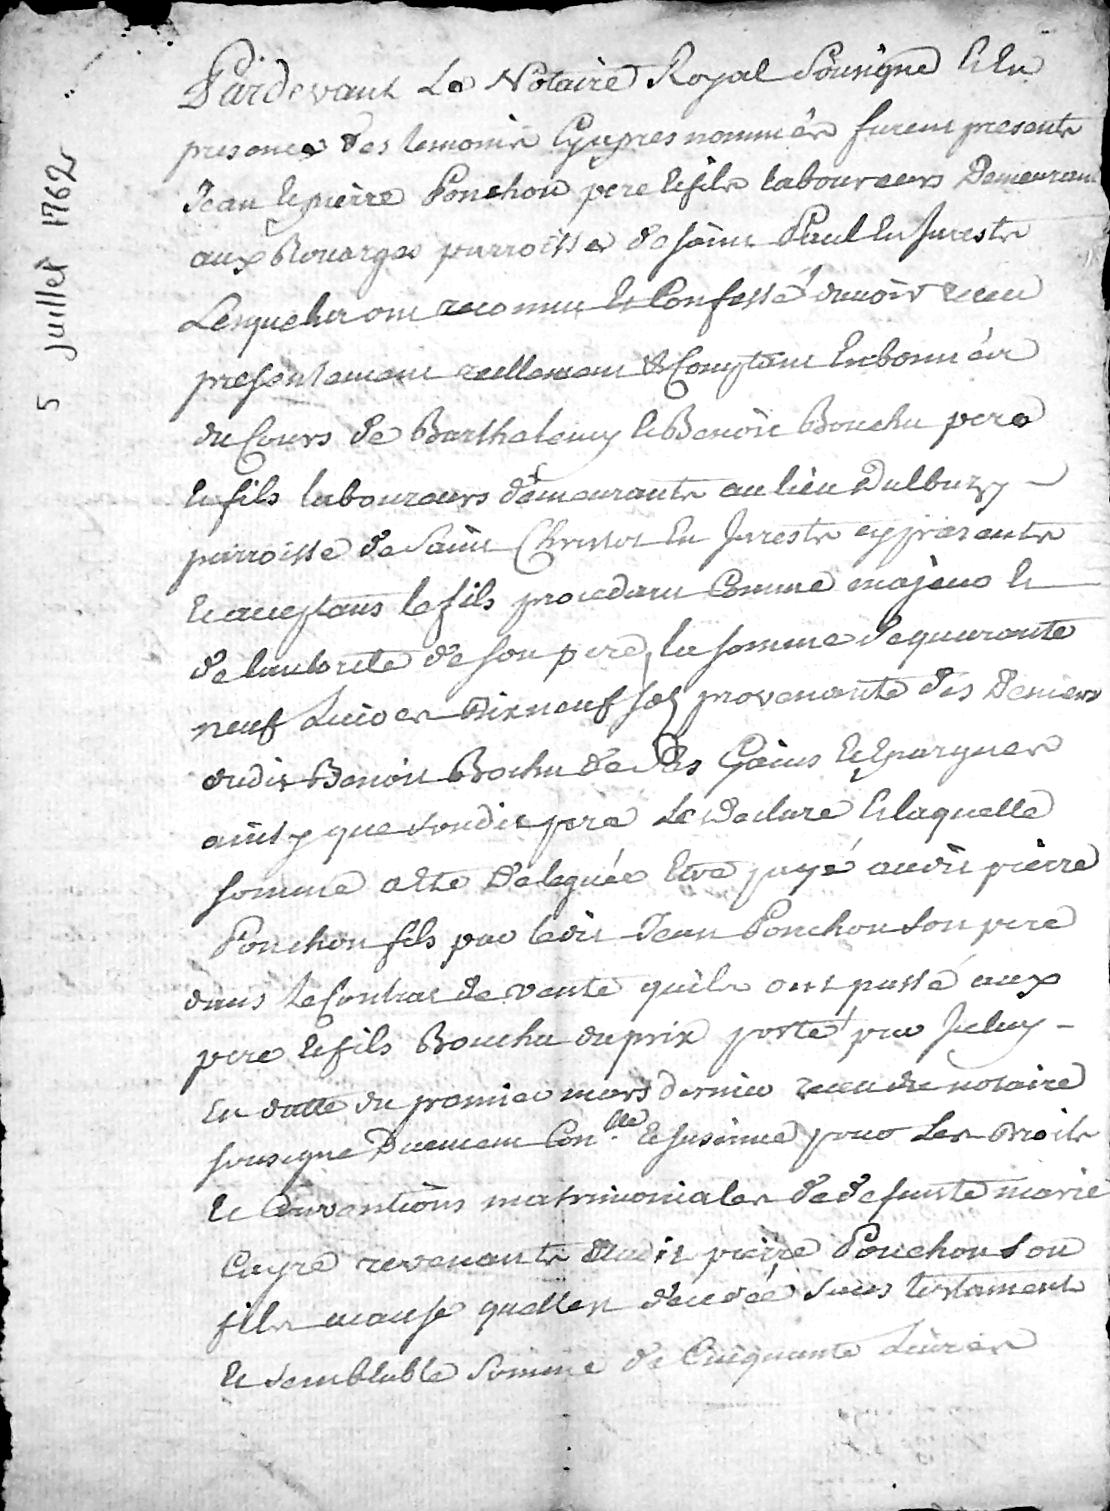 5 juillet 1762
Pardevant Le Notaire Royal Sousigne Et En
presence des temoins Cyapres nommés furent presents
Jean Et pierre Ponchon pere Et fils laboureurs Demeurant
aux Rouarges parroisse de saint Paul En Jurests
Lesquels ont reconnu Et Confessé davoir receu
presentement reellement & Comptant En bonnes
du Cours de Barthelemy Et Benoit Bouchu pere
Et fils laboureurs demeurants au lieu Dulbuzy
parroisse de Saint Christot En Jurests cy presents
Et acceptans le fils procedant Comme majeur Et
de lautorite de son pere, la somme de quarante
neuf Livres Dixneuf sols provenante des Deniers
dudit Benoit Bochu de Ses Gains Et Epargnes
ainsy que sondit pere Le Declare Et laquelle
somme a Ete Deleguée Etre payé audit pierre
Ponchon fils par ledit Jean Ponchon son pere
dans le Contrat de vente quils ont passé aux
pere Et fils Bouchu du prix porté par Jceluy
En datte du premier mars dernier receu du notaire
sousigne Duement Con.lle Et Jnsinue pour Les Droits
Et Conventions matrimoniales de defunte marie
Cayre revenants audit pierre Ponchon son
fils acause quelle est decedée sans testament
Et semblable somme de Cinquante Livres